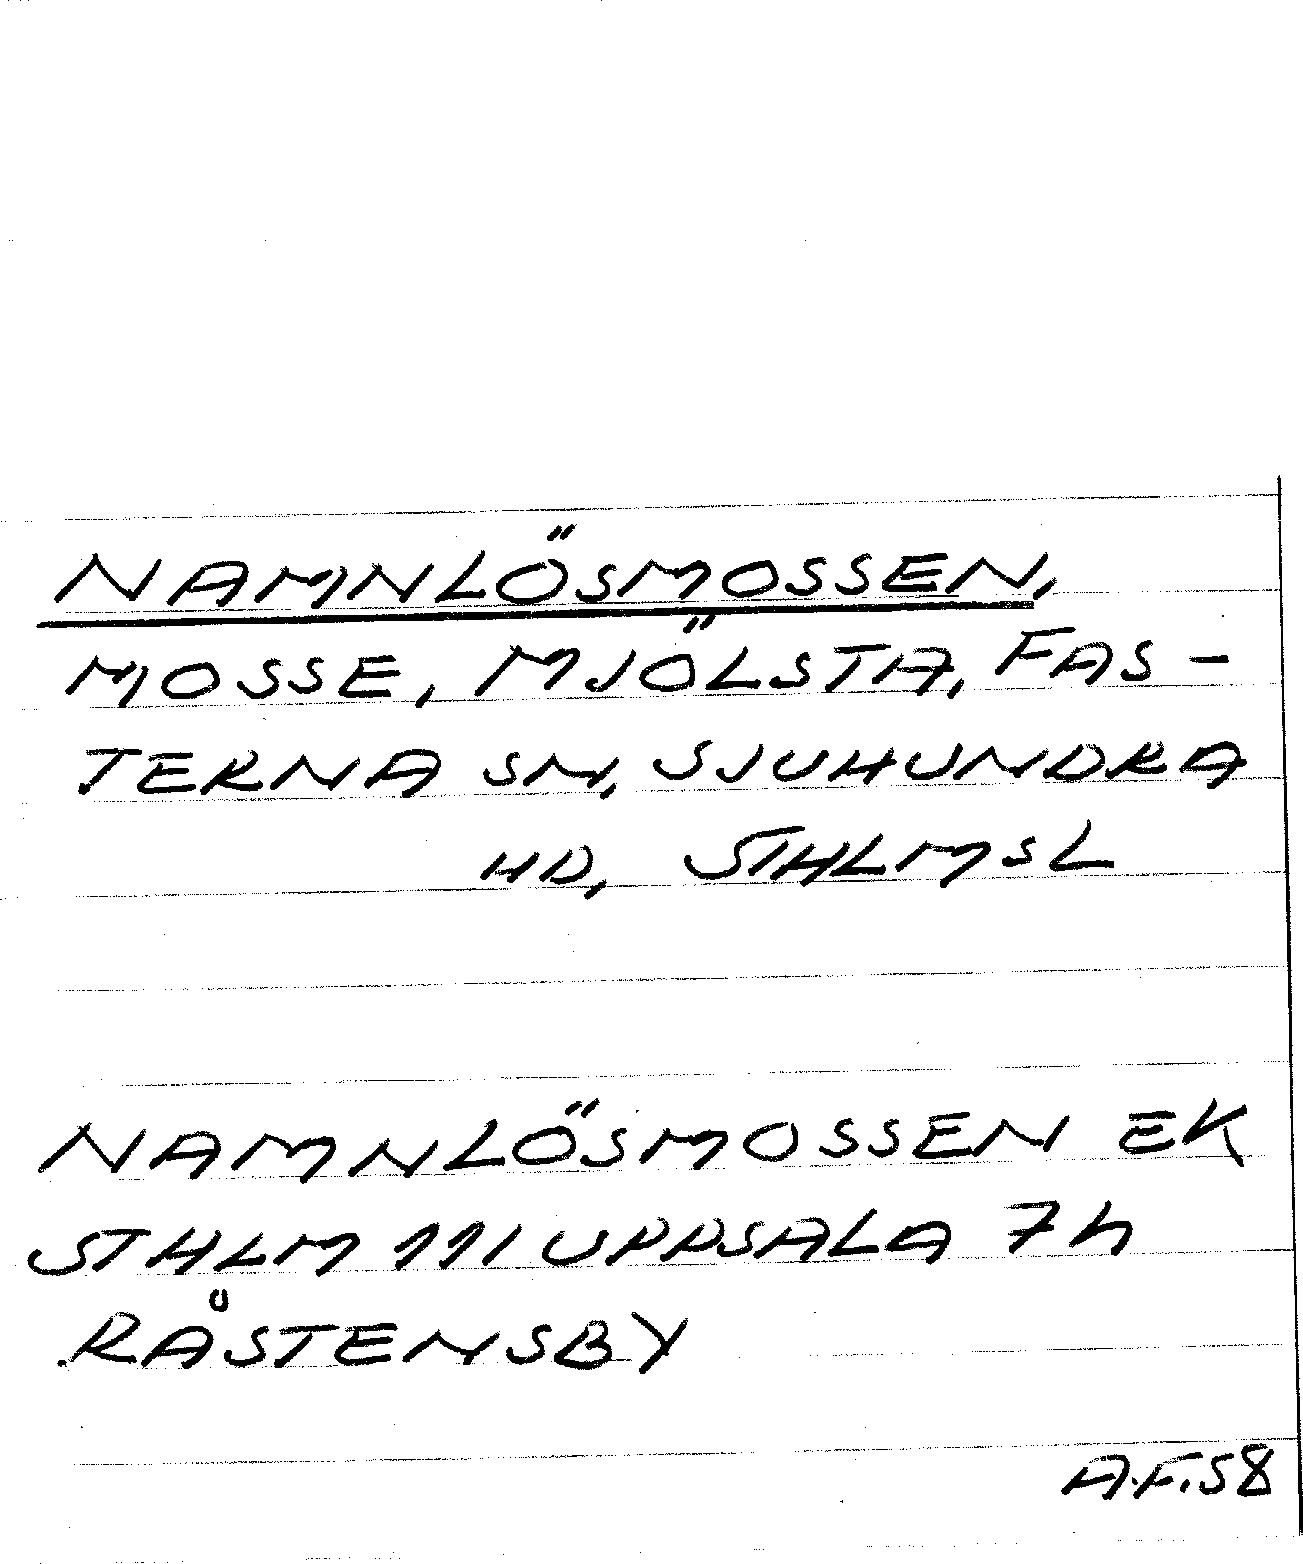 NAMNLÖSMOSSEN,
MOSSE, MJÖLSTA, FAS-
TERNA SN, SJUHUNDRA
HD, STHLMSL
NAMNLÖSMOSSEN EK
STHLM 111 UPPSALA 7h
RÅSTENSBY
A.F.58